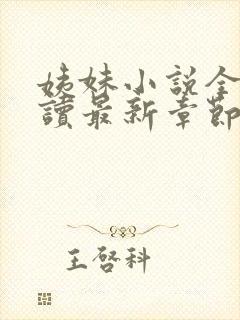 姊妹小說全
讀最新章節
王啓科